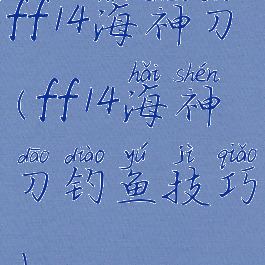 ff14海神刀
hǎi shén
(ff14海神
dāo diào yú jì qiǎo
刀钓鱼技巧
)